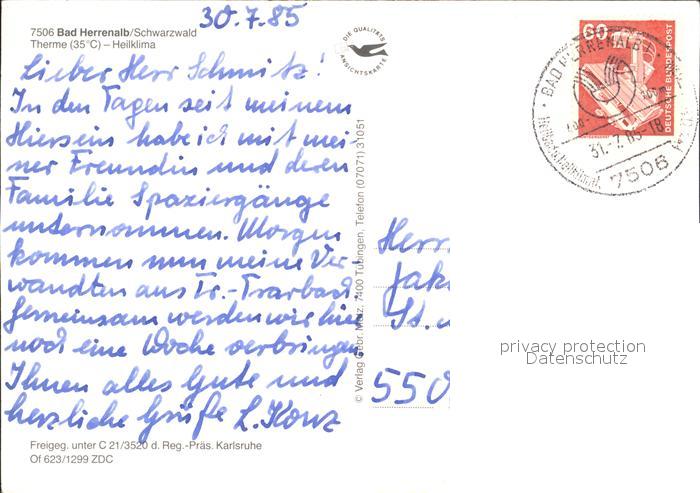 30.7.85
7506 Bad Herrenalb/Schwarzwald
Therme (35°C) – Heilklima
Lieber Herr Schmitz!
In den Tagen seit meinem
Hiersein habe ich mit mei-
ner Freundin und deren
Familie Spaziergänge
unternommen. Morgen
kommen nun meine Ver-
wandten aus Tr.-Trarbach.
Gemeinsam werden wir hier
noch eine Woche verbringen
Ihnen alles Gute und
herzliche Grüße L. Konz
Freigeg. unter C 21/3520 d. Reg.-Präs. Karlsruhe
Of 623/1299 ZDC
DIE QUALITÄTS
ANSICHTSKARTE
© Verlag Gebr. Metz, 7400 Tübingen, Telefon (07071) 31051
60
DEUTSCHE BUNDESPOST
BAD HERRENALB 1
31.-7.85-18
7506
Herr
Jak
St.
550
privacy protection
Datenschutz